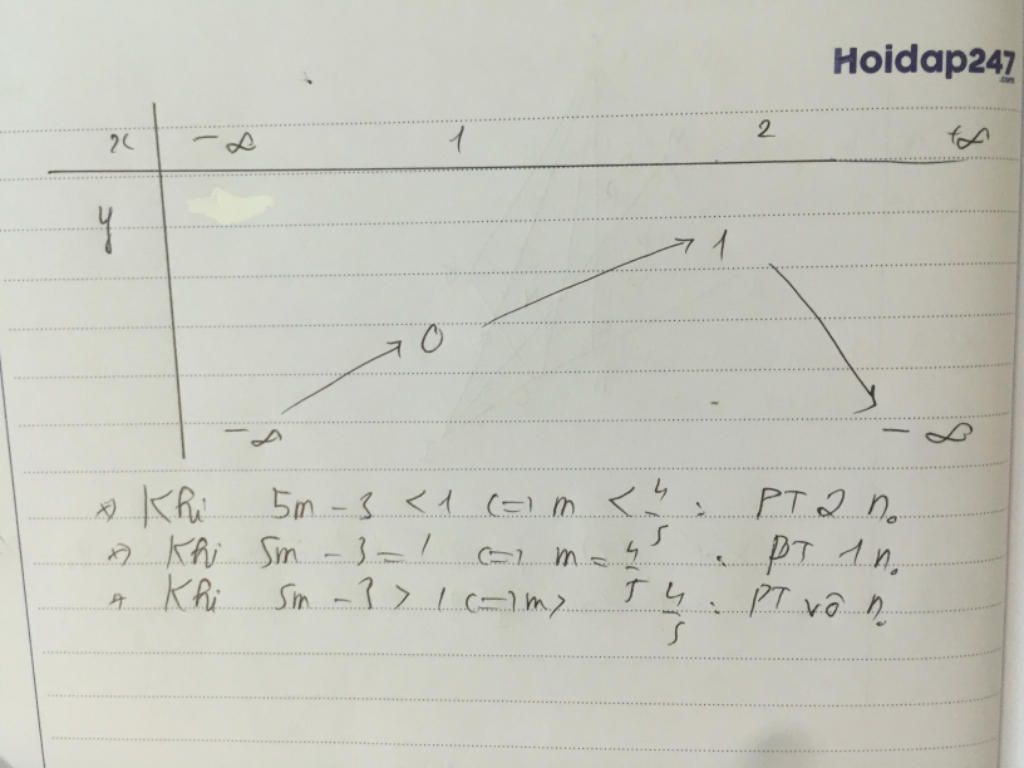 Hoidap247
.com
x -∞ 1 2 +∞
y
1
0
-∞ -∞
*) Khi 5m - 3 < 1 <=> m < 4/5 : PT 2 n.
*) Khi 5m - 3 = 1 <=> m = 4/5 : PT 1 n.
* Khi 5m - 3 > 1 <=> m > 4/5 : PT vô n.